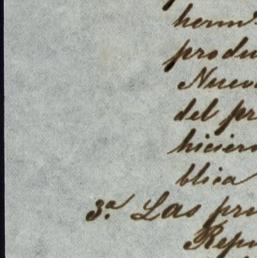 herm
produ
Nuev
del pr
hiciero
blica
3.ª Las pri
Repu